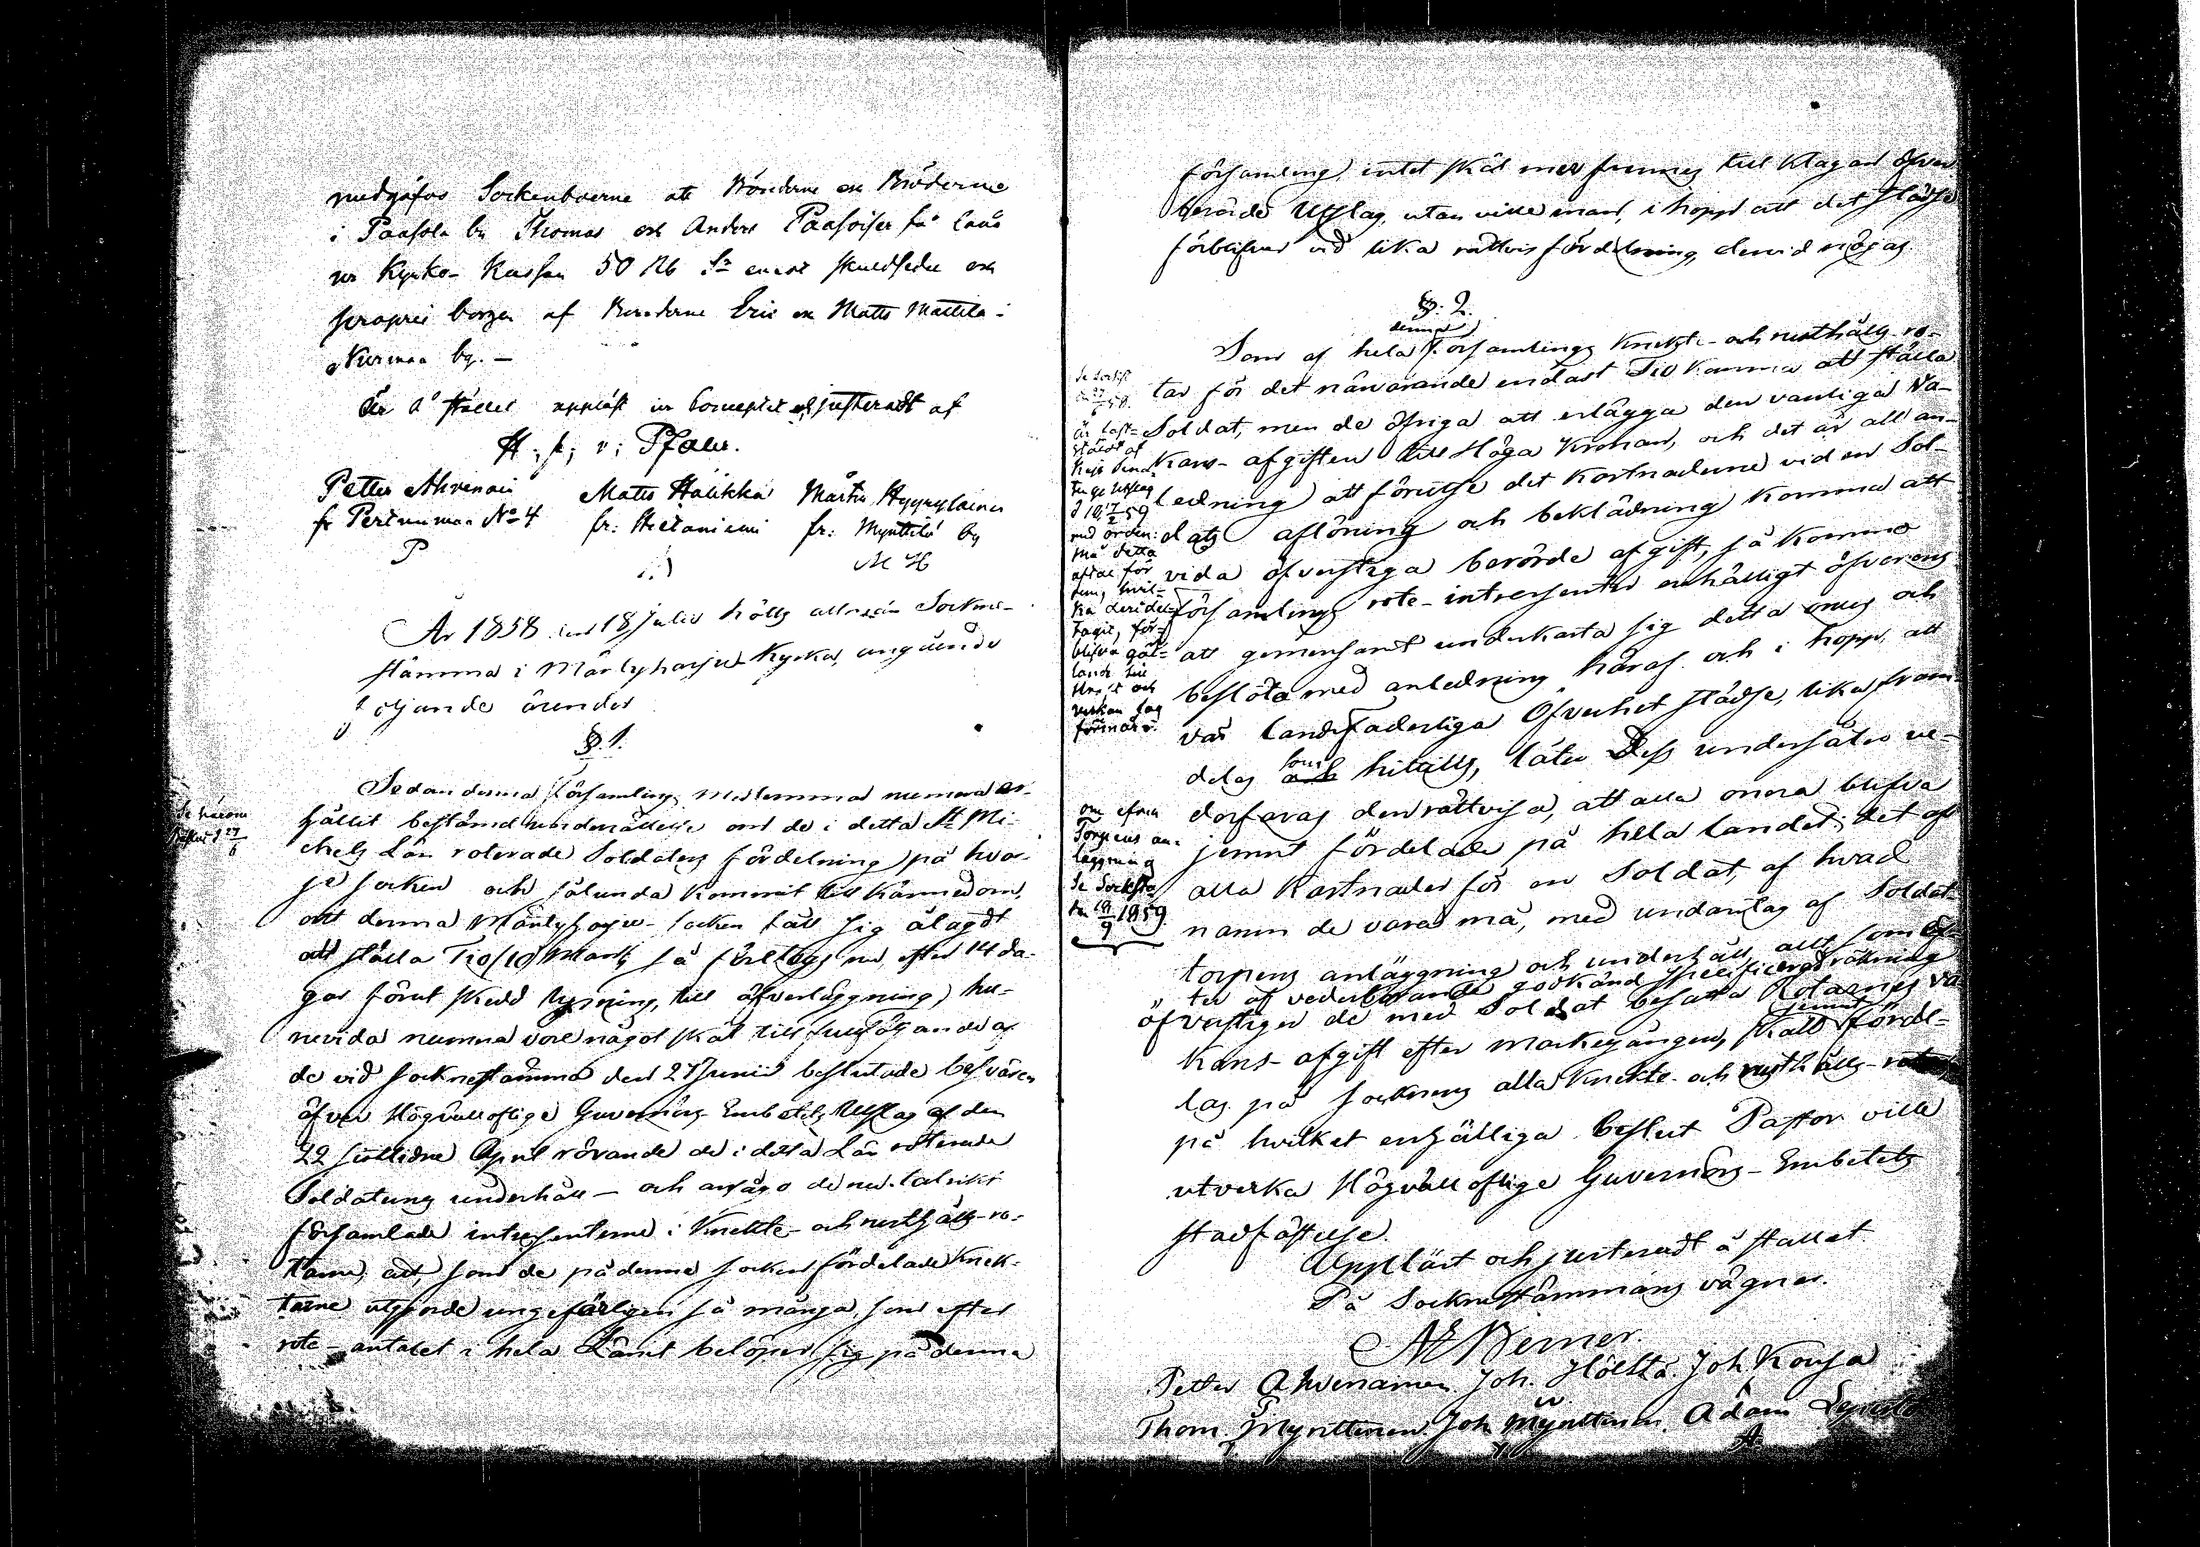 medgåfvo Sockenboerne att Bönderne och Bröderne
i Paasola by Thomas och Anders Paasoiser få låna
ur Kyrko-Kassan 50 Rb Sr emot skuldsedel och
proprie borgen af Bönderne Eric och Matts Mattila i
Nurmaa by. —
År å stället uppläst ur Conceptet och justeradt af
Petter Ahvenain Matts Halikka Mårten Hyyryläinen
fr Pertunmaa No 4 fr: Hietaniemi fr: Mynttilä by
P M H
År 1858 den 18 Julii hölts allmän Sockne-
stämma i Mäntyharju Kyrka angående
följande ärender
§. 1.
Sedan denna Församlings medlemmar numera er-
hållit bestämd underrättelse om de i detta St Mi-
chels Län roterade Soldaters fördelning på hvar-
je socken och sålunda kommit till kännedom,
att denna Mäntyharju-socken fått sig ålagdt
att ställa Tio/10/ Man; så företogs nu, efter 14 da-
gar förut skedd lysning, till öfverläggning, hu-
ruvida numera vore något skäl till fullföljande af
de vid socknestämma den 27 Junii beslutade besvären
öfver Högvällofliga Guvernörs-Embetets Utslag af den
22 sistlidne April rörande de i detta Län roterade
Soldaters underhåll – och ansågo de nu talrikt
församlade intressenterne i Knekte- och rusthålls-ro-
tarne, att, som de på denna socken fördelade Knek-
tarne utgjorde ungefärligen så många, som efter
rote-antalet i hela Länet belöper sig på denna
Se härom
församling, intet skäl mer finnes till klagan öfver
berörde Utslag, utan ville man, i hopp att det städse
förblifver vid lika rättvis fördelning, dervid nöjas.
§. 2.
denna
Som af hela Församlings Knekte- och rusthålls-ro-
tar för det närvarande endast Tio komma att ställa
Soldat, men de öfriga att erlägga den vanliga Va-
kans-afgiften till Höga Kronan, och det är all an-
ledning att förutse det kostnaderne vid en Sol-
dats aflöning och beklädning komma att
vida öfverstiga berörde afgift, så komma
församlings rote-intressenter enhälligt öfverens
att gemensamt underkasta sig detta onus och
besluta med anledning häraf och i hopp, att
vår landsfaderliga Öfverhet städse, lika fram-
deles som hittills, låter Dess undersåter ve-
derfaras den rättvisa, att alla onera blifva
jemnt fördelade på hela landet; det
alla kostnader för en Soldat, af hvad
namn de vara må, med undantag af Soldat-
torpens anläggning och underhåll, allt som
ter af vederbörande godkänd specificerad räkning
öfverstiger de med Soldat besatta Rotarnes Va-
jemnt
kans-afgift efter markegången, skall förde-
las på socknens alla Knekte- och rusthålls-rotar
på hvilket enhälliga beslut Pastor ville
utverka Högvällofliga Guvernörs-Embetets
stadfästelse.
Uppläst och justeradt å stället
På Socknestämmans vägnar.
Berner.
Petter Ahvenainen Joh. Höltta Joh Konsa
Thom. Mynttinen Joh Mynttinen Adam
är fast-
stäldt af
Kejs Sena-
tens Utslag
d 17/2 59
med orden:
må detta
aftal för
dem, hvil-
ka deri del-
tagit, för-
blifva gäl-
lande till
och
verkan lag
förmår.
om efven
Torpens an-
läggning
Se Socksta
1859